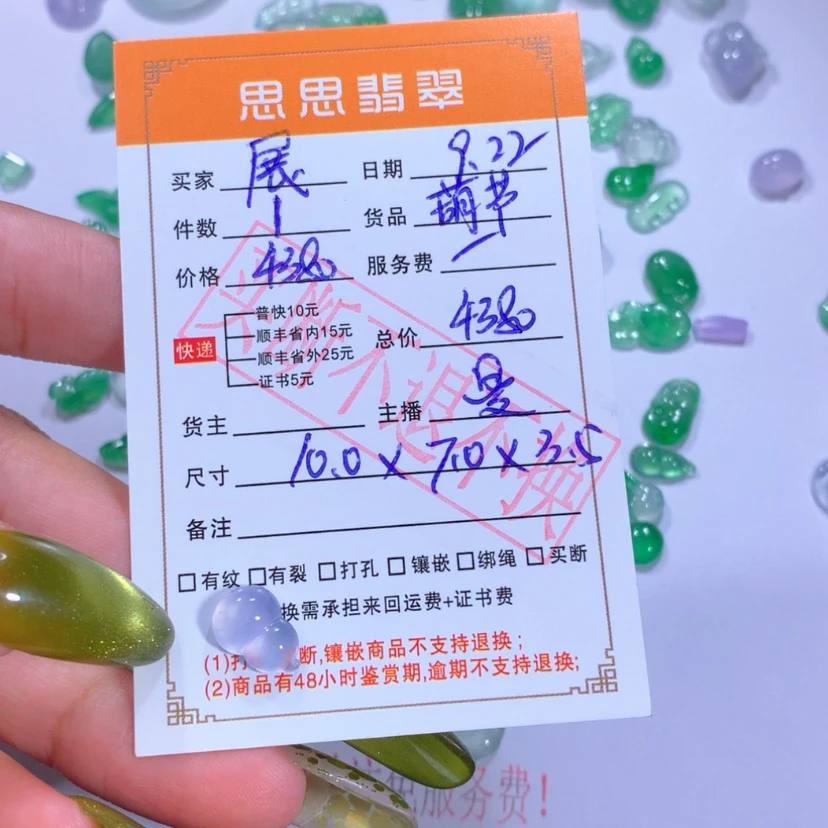 思思翡翠
买家 展 日期 9.22
件数 1 货品 葫芦
价格 4380 服务费
快递
普快10元
顺丰省内15元
顺丰省外25元
证书5元
总价 4380
货主 主播
尺寸 10.0 x 7.0 x 3.5
备注
□有纹 □有裂 □打孔 □镶嵌 □绑绳 □买断
换需承担来回运费+证书费
(1)打 断,镶嵌商品不支持退换;
(2)商品有48小时鉴赏期,逾期不支持退换;
买断不退不换
服务费!